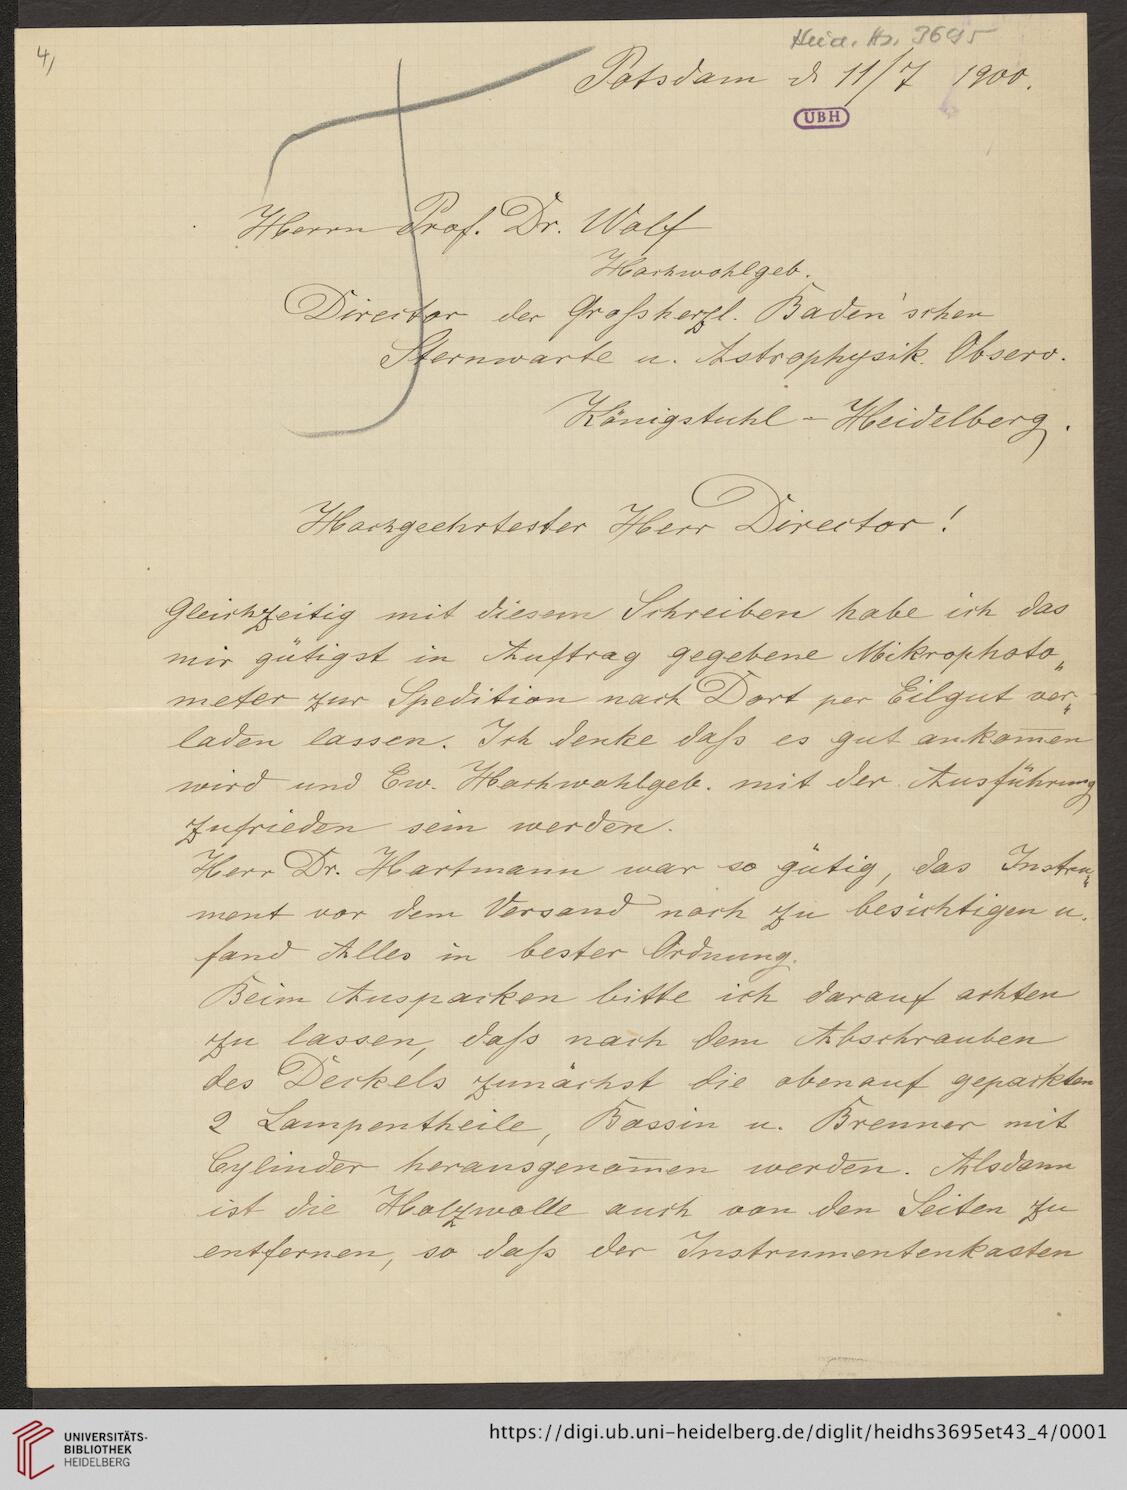 4,
Heid. Hs. 3695
Potsdam d 11/7 1900.
UBH
Herrn Prof. Dr. Wolf
Hochwohlgeb.
Director der Großherzl. Baden'schen
Sternwarte u. Astrophysik. Observ.
Königstuhl - Heidelberg.
Hochgeehrtester Herr Director!
Gleichzeitig mit diesem Schreiben habe ich das
mir gütigst in Auftrag gegebene Mikrophoto„
meter zur Spedition nach Dort per Eilgut ver„
laden lassen. Ich denke daß es gut ankom̅en
wird und Ew. Hochwohlgeb. mit der Ausführung
zufrieden sein werden.
Herr Dr. Hartmann war so gütig, das Instru„
ment vor dem Versand noch zu besichtigen u.
fand Alles in bester Ordnung.
Beim Auspacken bitte ich darauf achten
zu lassen, daß nach dem Abschrauben
des Deckels zunächst die obenauf gepackten
2 Lampentheile, Bassin u. Brenner mit
Cylinder herausgenom̅en werden. Alsdann
ist die Holzwolle auch von den Seiten zu
entfernen, so daß der Instrumentenkasten
UNIVERSITÄTS-
BIBLIOTHEK
HEIDELBERG
https://digi.ub.uni-heidelberg.de/diglit/heidhs3695et43_4/0001